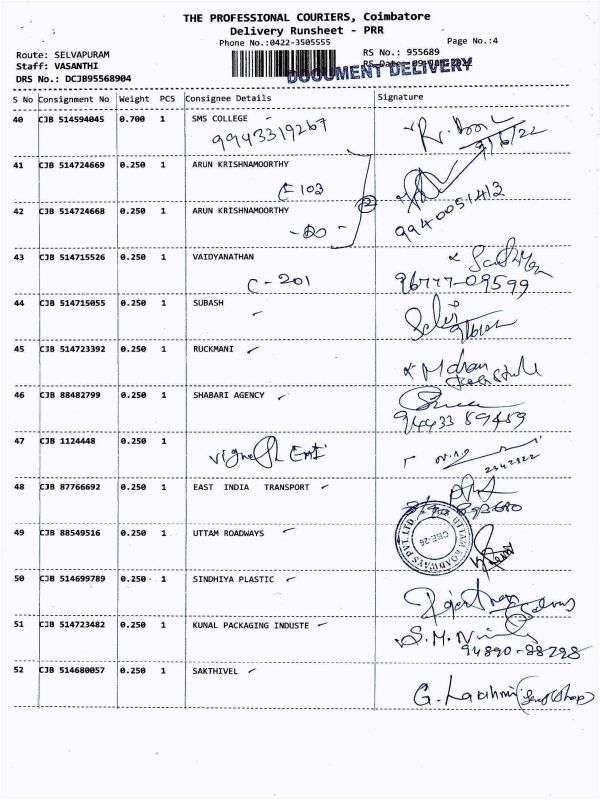 THE PROFESSIONAL COURIERS, Coimbatore
Delivery Runsheet - PRR
Phone No.:0422-3505555 Page No.:4
Route: SELVAPURAM RS No.: 955689
Staff: VASANTHI RS Date:
DOCUMENT DELIVERY
DRS No.: DCJB95568904
S No Consignment No Weight PCS Consignee Details Signature
40 CJB 514594045 0.700 1 SMS COLLEGE
9943319267
9/6/22
41 CJB 514724669 0.250 1 ARUN KRISHNAMOORTHY
E 103
2
42 CJB 514724668 0.250 1 ARUN KRISHNAMOORTHY
9940051413
- DO -
43 CJB 514715526 0.250 1 VAIDYANATHAN
C - 201 96777-09599
44 CJB 514715055 0.250 1 SUBASH
45 CJB 514723392 0.250 1 RUCKMANI
Mohan
46 CJB 88482799 0.250 1 SHABARI AGENCY
94433 59459
47 CJB 1124448 0.250 1
48 CJB 87766692 0.250 1 EAST INDIA TRANSPORT
49 CJB 88549516 0.250 1 UTTAM ROADWAYS
UTTAM ROADWAYS PVT. LTD.
CBE-26
50 CJB 514699789 0.250 1 SINDHIYA PLASTIC
51 CJB 514723482 0.250 1 KUNAL PACKAGING INDUSTE
94890-88298
52 CJB 514680057 0.250 1 SAKTHIVEL
G. Lakshmi